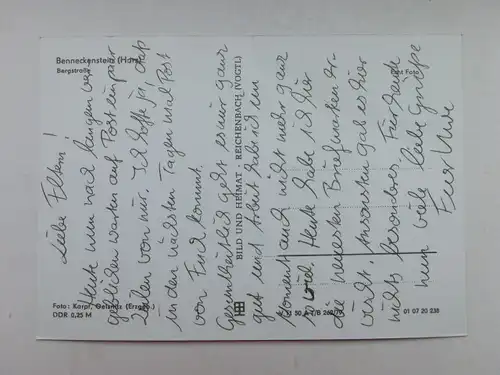 Benneckenstein (Harz)
Bergstraße
Echt Foto
Liebe Eltern!
Heute nun nach langen ver-
geblichen warten auf Post ein paar
Zeilen von mir. Ich hoffe ja, daß
in den nächsten Tagen mal Post
von Euch kommt.
Gesundheitlich geht es mir ganz
gut und Arbeit habe ich im
Moment auch nicht mehr ganz
so viel. Heute habe ich hier
die neuesten Briefmarken er-
wischt, ansonsten gab es hier
nichts besonderes. Für heute
nun viele liebe Grüße
Euer Uwe
BILD UND HEIMAT · REICHENBACH (VOGTL)
Foto: Karpf, Oelsnitz (Erzgeb.)
DDR 0,25 M
01 07 20 238